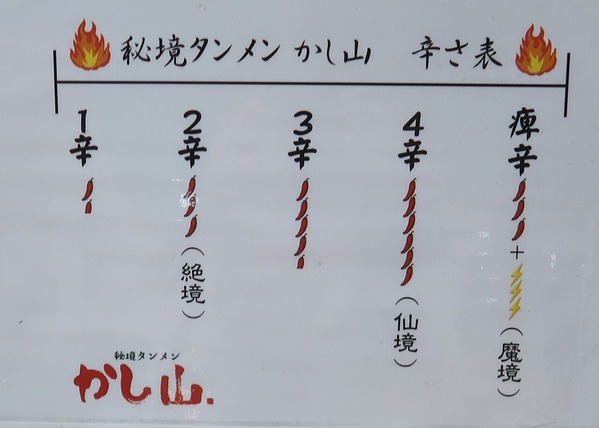 秘境タンメン かし山 辛さ表
1辛
2辛
(絶境)
3辛
4辛
(仙境)
痺辛
+
(魔境)
秘境タンメン
かし山.